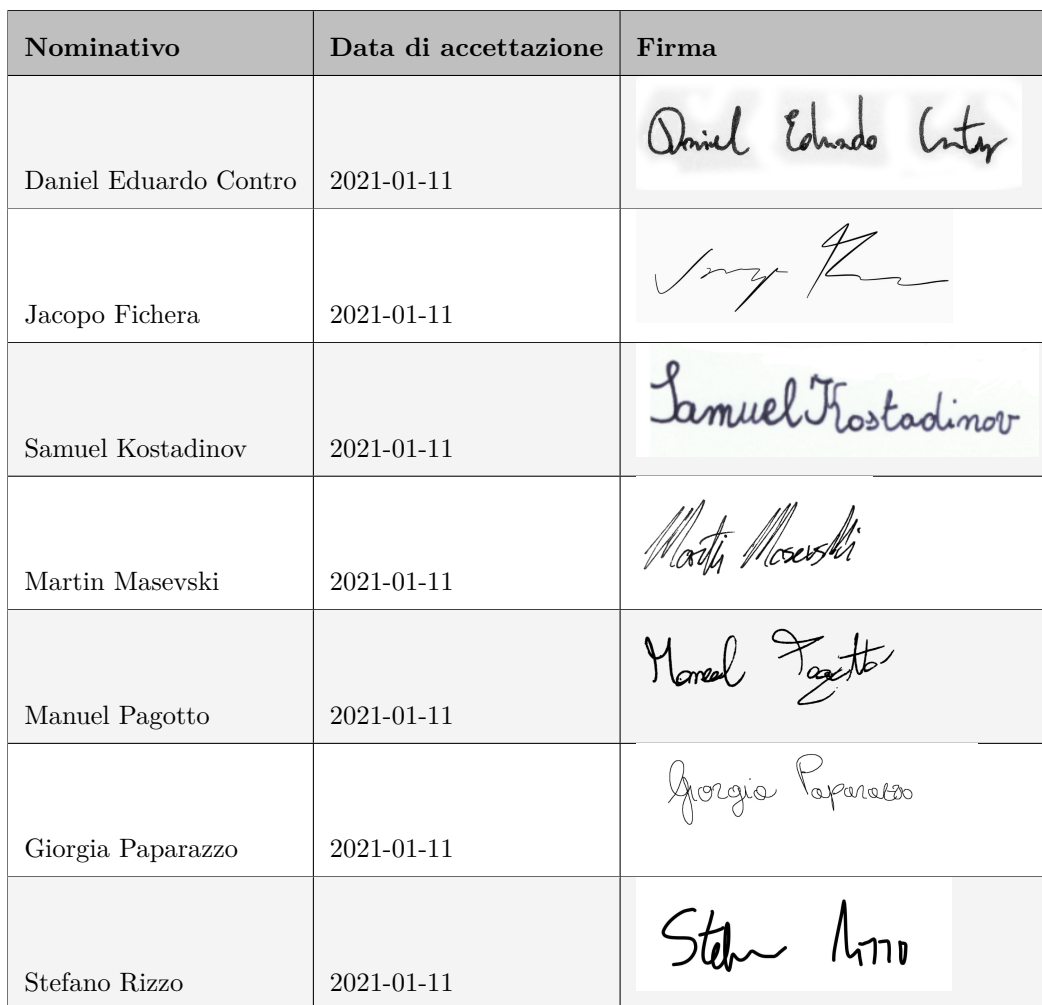 Nominativo Data di accettazione Firma
Daniel Eduardo Contro 2021-01-11 Daniel Eduardo Contro
Jacopo Fichera 2021-01-11
Samuel Kostadinov 2021-01-11 Samuel Kostadinov
Martin Masevski 2021-01-11 Martin Masevski
Manuel Pagotto 2021-01-11 Manuel Pagotto
Giorgia Paparazzo 2021-01-11 Giorgia Paparazzo
Stefano Rizzo 2021-01-11 Stefano Rizzo